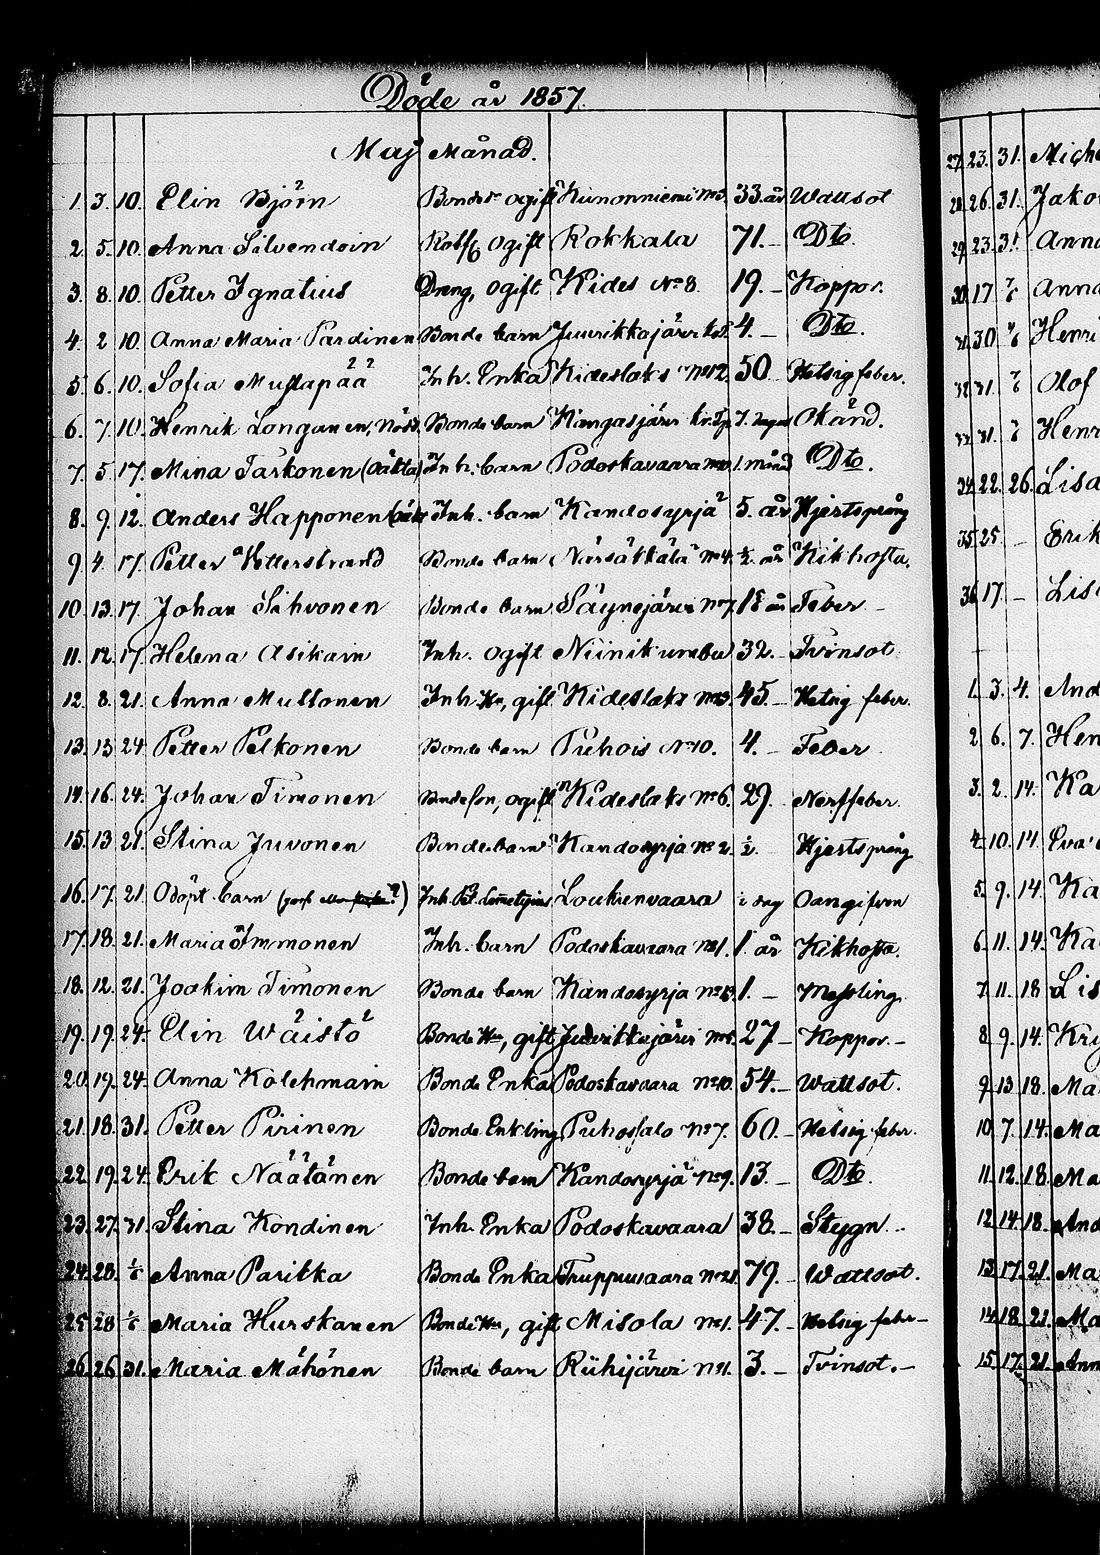 Döde år 1857.
Maj Månad.
1. 3. 10. Elin Björn Bondedr ogift Kunonniemi No 3. 33. år Wattsot
2. 5. 10. Anna Silvendoin ogift Kokkala 71. - Dto
3. 8. 10. Petter Ignatius Dreng, ogift Kides No 8. 19. - Koppor.
4. 2 10. Anna Maria Pardinen Bonde barn Juurikkajärvi 4. - Dto.
5 6. 10. Sofia Mustapää Inh. Enka Kideslaks No 12. 50 Hetsig feber.
6. 7. 10. Henrik Longanen, Bonde barn Kangasjärvi 7. dagar Okänd.
7. 5 17. Mina Tarkonen (oäkta) Inh. barn Podoskavaara 1. månd Dto.
8. 9. 12. Anders Happonen Inh. barn Kandosyrjä 5. år Hjertsprång
9 4. 17. Petter Wetterstrand Bonde barn Närsäkkälä No 4. ½ år Kikhosta.
10. 13. 17. Johan Sihvonen Bonde barn Säynejärvi No 7. år Feber -
11. 12. 17. Helena Asikain Inh. ogift Niinikumbu 32. - Tvinsot.
12. 8. 21. Anna Multonen Inh. Hu, gift Kideslaks No 3. 45. - Hetsig feber.
13. 13 24 Petter Pelkonen Bonde barn Puhois No 10. 4. - Feber
14. 16. 24. Johan Timonen Bondeson, ogift Kideslaks No 6. 29. Nerffeber.
15. 13 21. Stina Juvonen Bonde barn Kandosyrja No 2. ½. Hjertsprång
16. 17. 21. Odöpt barn Inh. Loukunvaara 1 dag Oangifven
17. 18. 21. Maria Immonen Inh. barn Podoskavaara No 1. 1. år Kikhosta.
18. 12. 21. Joakim Timonen Bonde barn Kandosyrja 1. - Messling.
19. 19. 24. Elin Wäistö Bonde Hu, gift Juurikkajärvi No 5. 27 - Koppor. -
20. 19. 24. Anna Kolehmain Bonde Enka Podoskavaara No 10. 54. - Wattsot.
21. 18. 31. Petter Pirinen Bonde Enkling Puhossalo No 7. 60. - Hetsig feber.
22. 19. 24. Erik Näätänen Bonde barn Kandosyrjä No 9. 13. - Dto.
23. 27. 31. Stina Kondinen Inh. Enka Podoskavaara 38. - Stygn. -
24. 28. 1/6 Anna Parikka Bonde Enka Truppuvaara No 21. 79. - Wattsot.
25. 28 1/6 Maria Hurskanen Bonde Hu, gift Misola No 1. 47. - Hetsig feber -
26. 26 31. Maria Mähönen Bonde barn Riihijärvi No 1. 3. - Tvinsot. -
27. 23. 31. Miche
28. 26. 31. Jako
29. 23. 31. Anna
30. 17 Anna
31. 30 Henri
32. 31. Olof
33. 31. Henr
34. 22. 26. Lisa
35. 25. - Erik
36. 17 - Lis
1. 3. 4. And
2. 6. 7. Hen
3. 2. 14. Ka
4. 10. 14. Eva
5. 9. 14. Ka
6. 11. 14. Ka
7. 11. 18 Lis
8. 9. 14. Kry
9. 13 18. Ma
10. 7. 14. Ma
11. 12. 18. Ma
12 14. 18. And
13. 17. 21. Ma
14. 18. 21. Ma
15. 17. 21. Ann